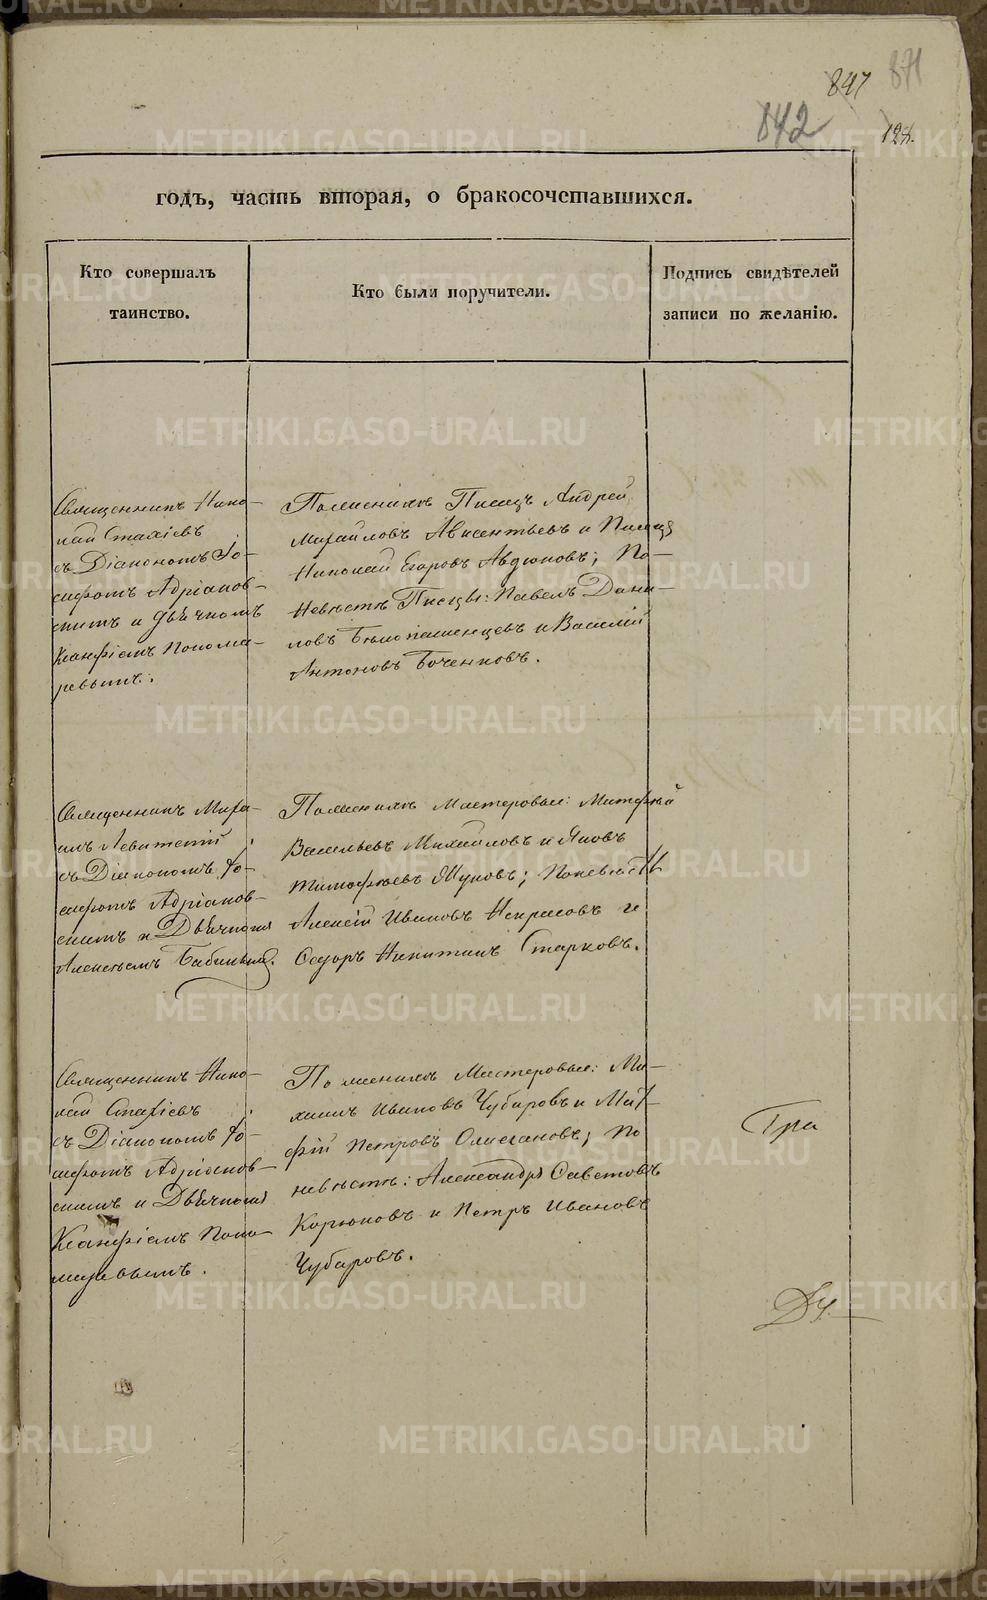 847 871
842 128.
годъ, часть вторая, о бракосочетавшихся.
Кто совершалъ
таинство.
Кто были поручители.
Подпись свидѣтелей
записи по желанію.
Священникъ Нико-
лай Стахіевъ
съ Діакономъ Іо-
сифомъ Адріанов-
скимъ и Дьячкомъ
Ксанфіемъ Понома-
ревымъ.
По женихѣ Писецъ Андрей
Михайловъ Авксентьевъ и Писецъ
Николай Егоровъ Авдюковъ; По-
Невѣстѣ Писцы: Павелъ Дани-
ловъ Бѣлопашенцевъ и Василій
Антоновъ Боченковъ.
Священникъ Миха-
илъ Левитскій
съ Діакономъ Іо-
сифомъ Адріанов-
скимъ и Дьячкомъ
Алексѣемъ Бабинымъ.
По женихѣ Мастеровые: Матфей
Васильевъ Михайловъ и Яковъ
Тимофѣевъ Жуковъ; По невѣстѣ
Алексій Ивановъ Некрасовъ и
Ѳедоръ Никитинъ Старковъ.
Священникъ Нико-
лай Стахіевъ
съ Діакономъ Іо-
сифомъ Адріанов-
скимъ и Дьячкомъ
Ксанфіемъ Поно-
маревымъ.
По женихѣ Мастеровые: Ми-
хаилъ Ивановъ Чубаровъ и Мат-
фій Петровъ; По
невѣстѣ: Александръ Саветовъ
Корюковъ и Петръ Ивановъ
Чубаровъ.
Гра
METRIKI.GASO-URAL.RU